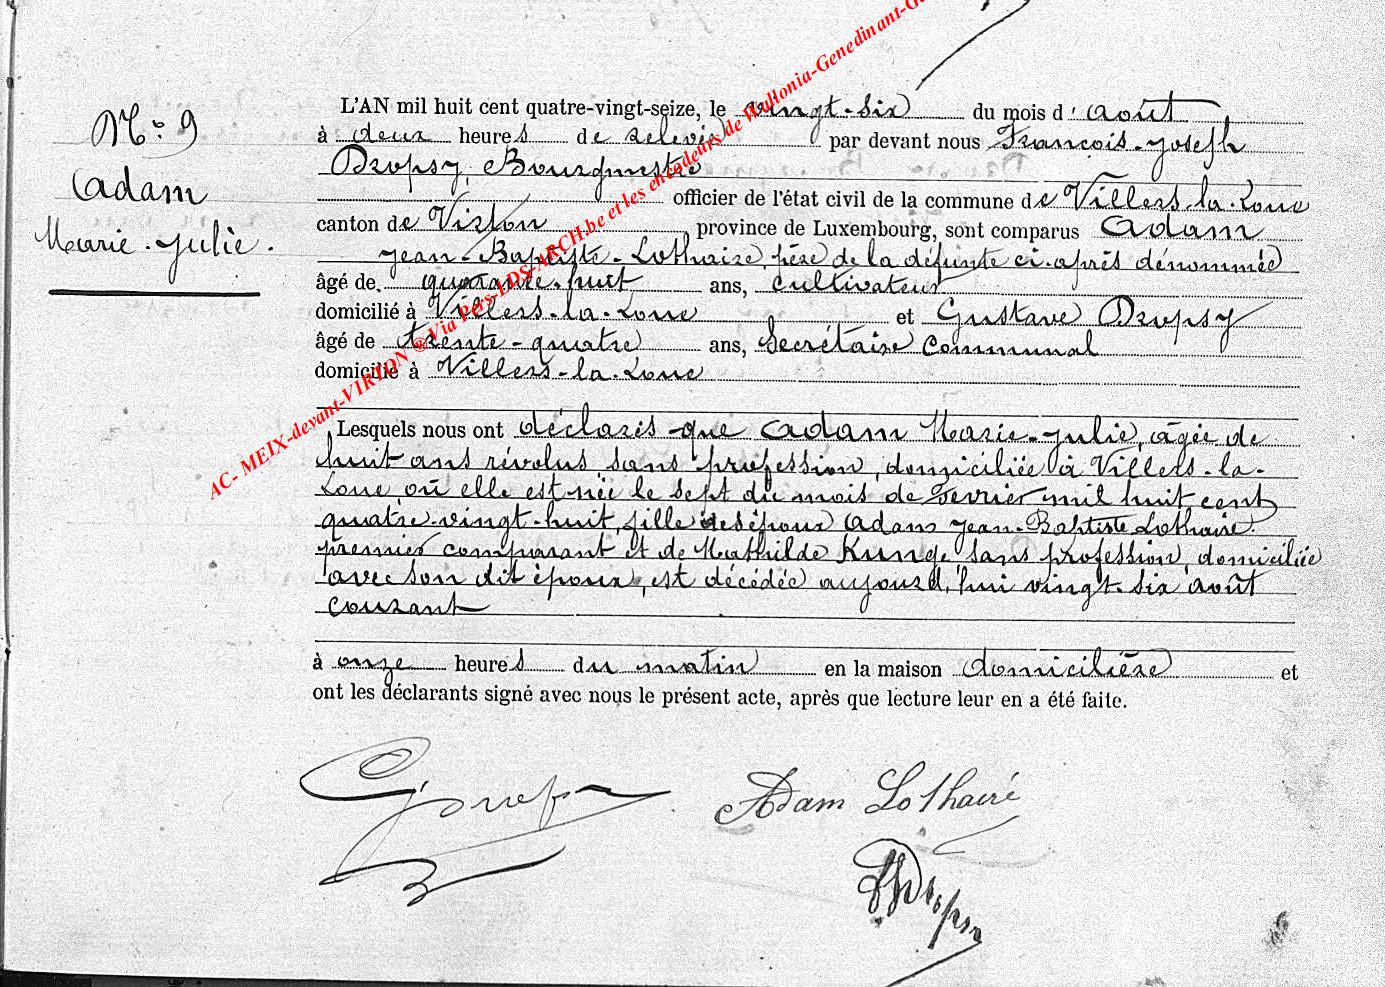 N° 9
Adam
Marie-Julie.
L'AN mil huit cent quatre-vingt-seize, le vingt-six du mois d'août
à deux heures de relevée par devant nous François-Joseph
Dropsy, Bourgmestre
officier de l'état civil de la commune de Villers-la-Loue
canton de Virton, province de Luxembourg, sont comparus Adam
Jean-Baptiste-Lothaire, père de la défunte ci-après dénommée
âgé de quarante-huit ans, cultivateur
domicilié à Villers-la-Loue et Gustave Dropsy
âgé de trente-quatre ans, Secrétaire communal
domicilié à Villers-la-Loue
Lesquels nous ont déclarés que Adam Marie-Julie, âgée de
huit ans révolus, sans profession, domiciliée à Villers-la-
Loue, où elle est née le sept du mois de Février mil huit cent
quatre-vingt-huit, fille des époux Adam Jean-Baptiste Lothaire
premier comparant et de Mathilde Kunge, sans profession, domiciliée
avec son dit époux, est décédée aujourd'hui vingt-six août
courant
à onze heures du matin en la maison domicilière et
ont les déclarants signé avec nous le présent acte, après que lecture leur en a été faite.
GDropsy
Adam Lothaire
Dropsy
AC- MEIX-devant-VIRTON @ Via Pers-LDS-ARCH.be et les encodeurs de Wallonia-Genedinant-G